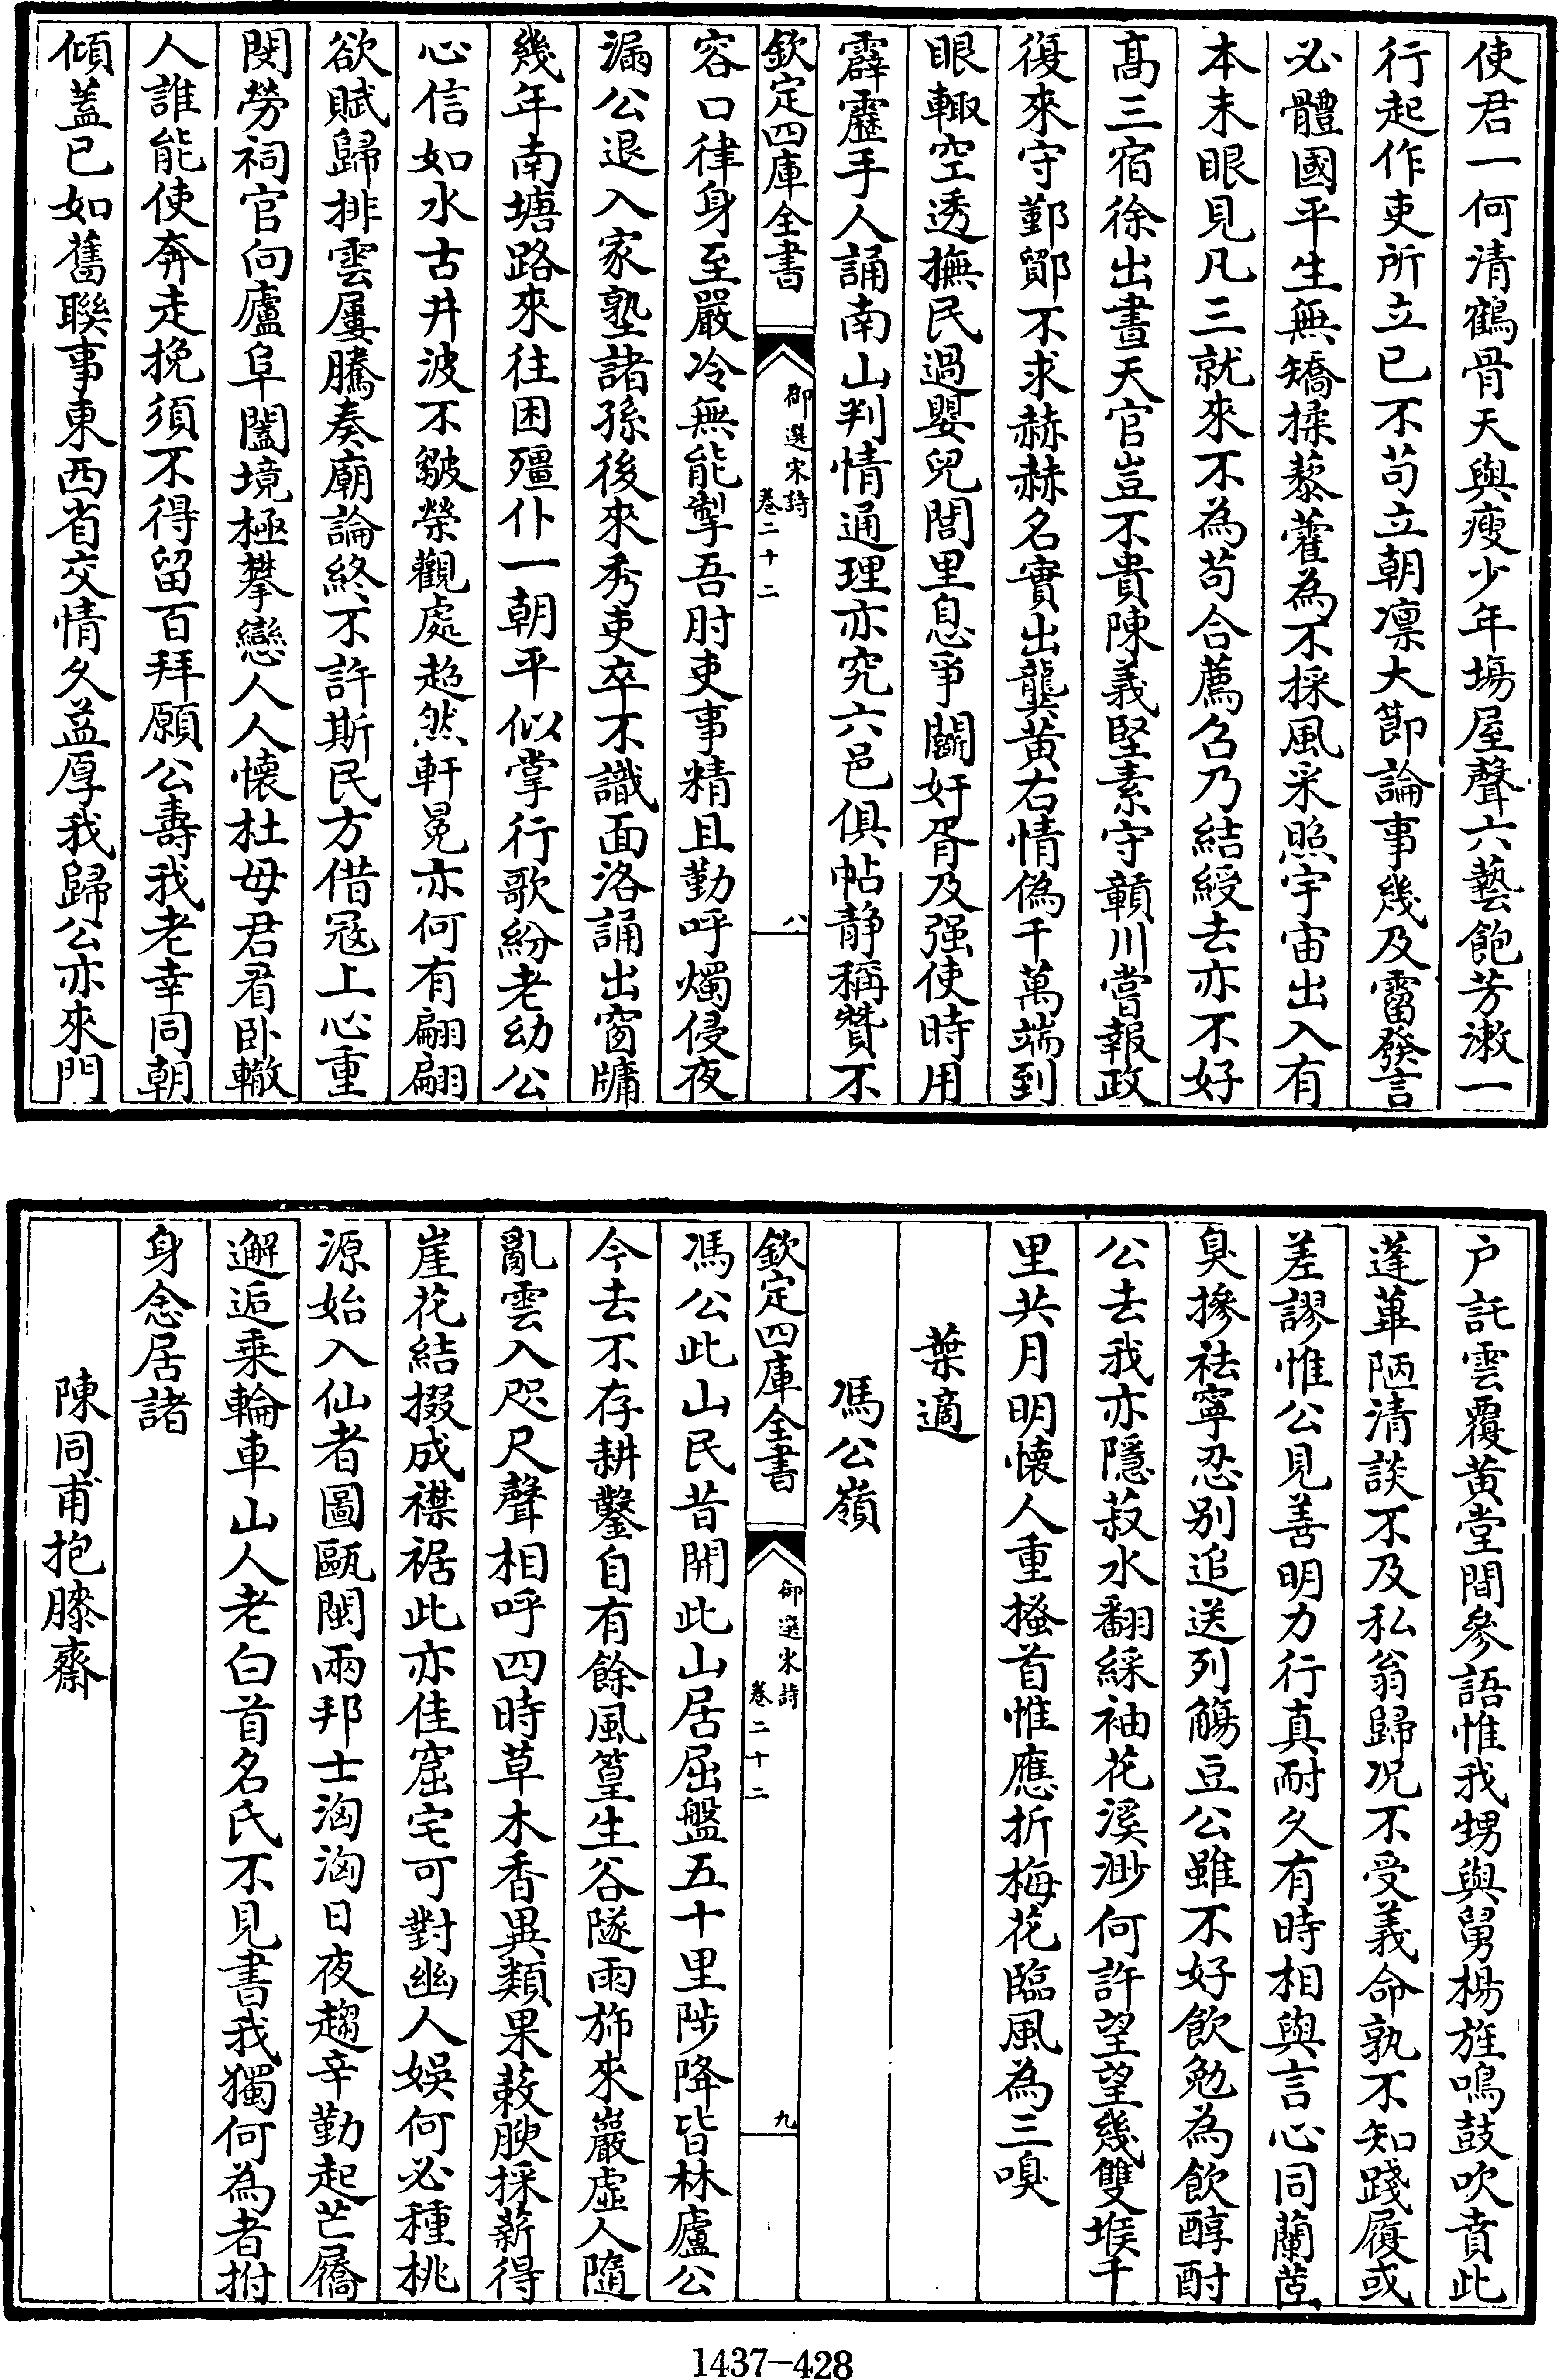 使君一何清鶴骨天與瘦少年塲屋聲六藝飽芳漱一
行起作吏所立已不苟立朝凛大節論事幾及霤發言
必體國平生無矯揉藜藿為不採風采照宇宙出入有
本末眼見凡三就來不為苟合薦召乃結綬去亦不好
髙三宿徐出晝天官豈不貴陳義堅素守頴川嘗報政
復來守鄞鄮不求赫赫名實出龔黄右情偽千萬端到
眼輙空透撫民過嬰兒閭里息爭鬬奸胥及强使時用
霹靂手人誦南山判情通理亦究六邑俱帖静稱贊不
欽定四庫全書
御選宋詩
卷二十二
八
容口律身至嚴冷無能掣吾肘吏事精且勤呼燭侵夜
漏公退入家塾諸孫後來秀吏卒不識面洛誦出窗牗
幾年南塘路來往困殭仆一朝平似掌行歌紛老幼公
心信如水古井波不皺榮觀處超然軒冕亦何有翩翩
欲賦歸排雲屢騰奏廟論終不許斯民方借冦上心重
閔勞祠官向廬阜闔境極攀戀人人懐杜母君看卧轍
人誰能使奔走挽須不得留百拜願公壽我老幸同朝
傾蓋已如舊聯事東西省交情久益厚我歸公亦來門
户託雲覆黄堂間參語惟我甥與舅楊旌鳴鼓吹賁此
蓬蓽陋清談不及私翁歸况不受義命孰不知踐履或
差謬惟公見善明力行真耐久有時相與言心同蘭茝
臭摻袪寧忍别追送列觴豆公雖不好飲勉為飲醇酎
公去我亦隱菽水翻綵袖花溪渺何許望望幾雙堠千
里共月明懐人重搔首惟應折梅花臨風為三嗅
葉適
馮公嶺
欽定四庫全書
御選宋詩
卷二十二
九
馮公此山民昔開此山居屈盤五十里陟降皆林廬公
今去不存耕鑿自有餘風篁生谷隧雨斾來巖虚人隨
亂雲入咫尺聲相呼四時草木香異類果蓛腴採薪得
崖花結掇成襟裾此亦佳窟宅可對幽人娯何必種桃
源始入仙者圖甌閩兩邦士洶洶日夜趨辛勤起芒屩
邂逅乗輪車山人老白首名氏不見書我獨何為者拊
身念居諸
陳同甫抱膝齋
1437-428